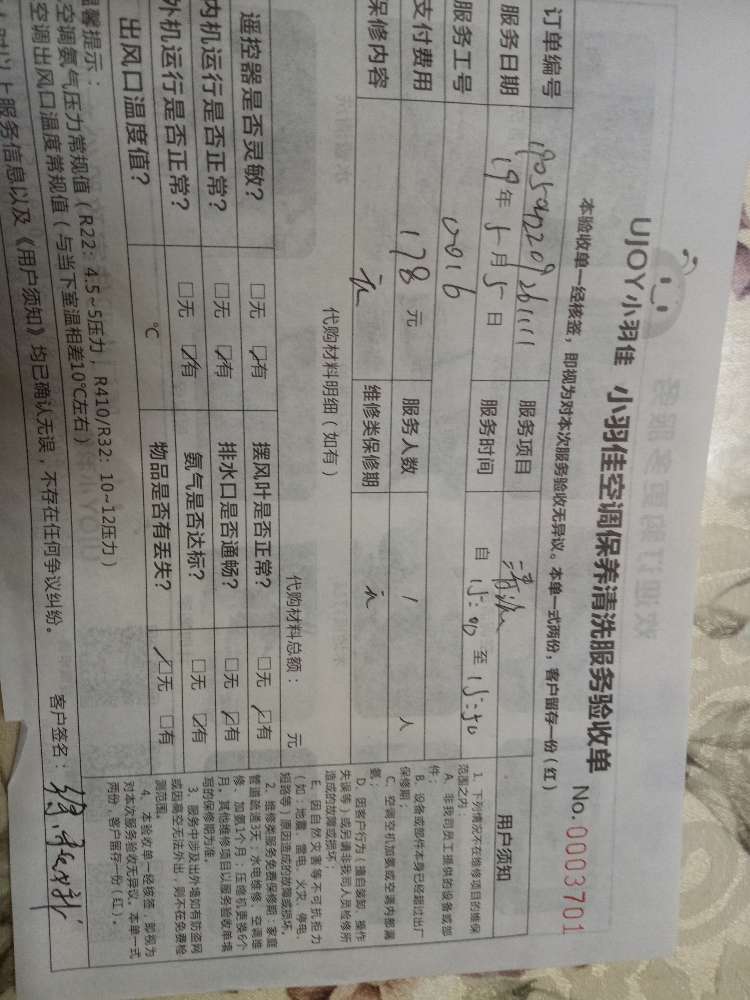 UJOY小羽佳 小羽佳空调保养清洗服务验收单 No.0003701
本验收单一经核签，即视为对本次服务验收无异议。本单一式两份，客户留存一份(红)
订单编号 服务项目 清洗
服务日期 19年5月5日 服务时间 自15:00至15:50
服务工号 0016
支付费用 178元 服务人数 1人
保修内容 维修类保修期
代购材料明细(如有) 代购材料总额： 元
遥控器是否灵敏? □无 ☑有 摆风叶是否正常? □无 ☑有
内机运行是否正常? □无 ☑有 排水口是否通畅? □无 ☑有
外机运行是否正常? □无 ☑有 氨气是否达标? □无 ☑有
出风口温度值? ℃ 物品是否有丢失? ☑无 □有
馨提示：
空调氨气压力常规值(R22: 4.5~5压力, R410/R32: 10~12压力)
空调出风口温度常规值(与当下室温相差10℃左右)
以上服务信息以及《用户须知》均已确认无误,不存在任何争议纠纷。 客户签名：
用户须知
1、下列情况不在维修项目的维保
范围之内：
A、非我司员工提供的设备或部
件；
B、设备或部件本身已经超过出厂
保修期；
C、空调空机加氨或空调内部漏
氨；
D、因客户行为(擅自装卸、操作
失误等)或另请非我司人员检修所
造成的故障或损坏；
E、因自然灾害等不可抗拒力
(如:地震、雷电、火灾、停电、
短路等)原因造成的故障或损坏。
2、维修类服务免费保修期：家庭
管道疏通3天；水电维修、空调维
修、加氨1个月；压缩机更换6个
月。其他维修项目以服务验收单填
写的保修期为准。
3、服务中涉及出外墙如有防盗网
或因悬空无法外出，则不在免费检
测范围。
4、本验收单一经核签，即视为
对本次服务验收无异议。本单一式
两份，客户留存一份(红)。